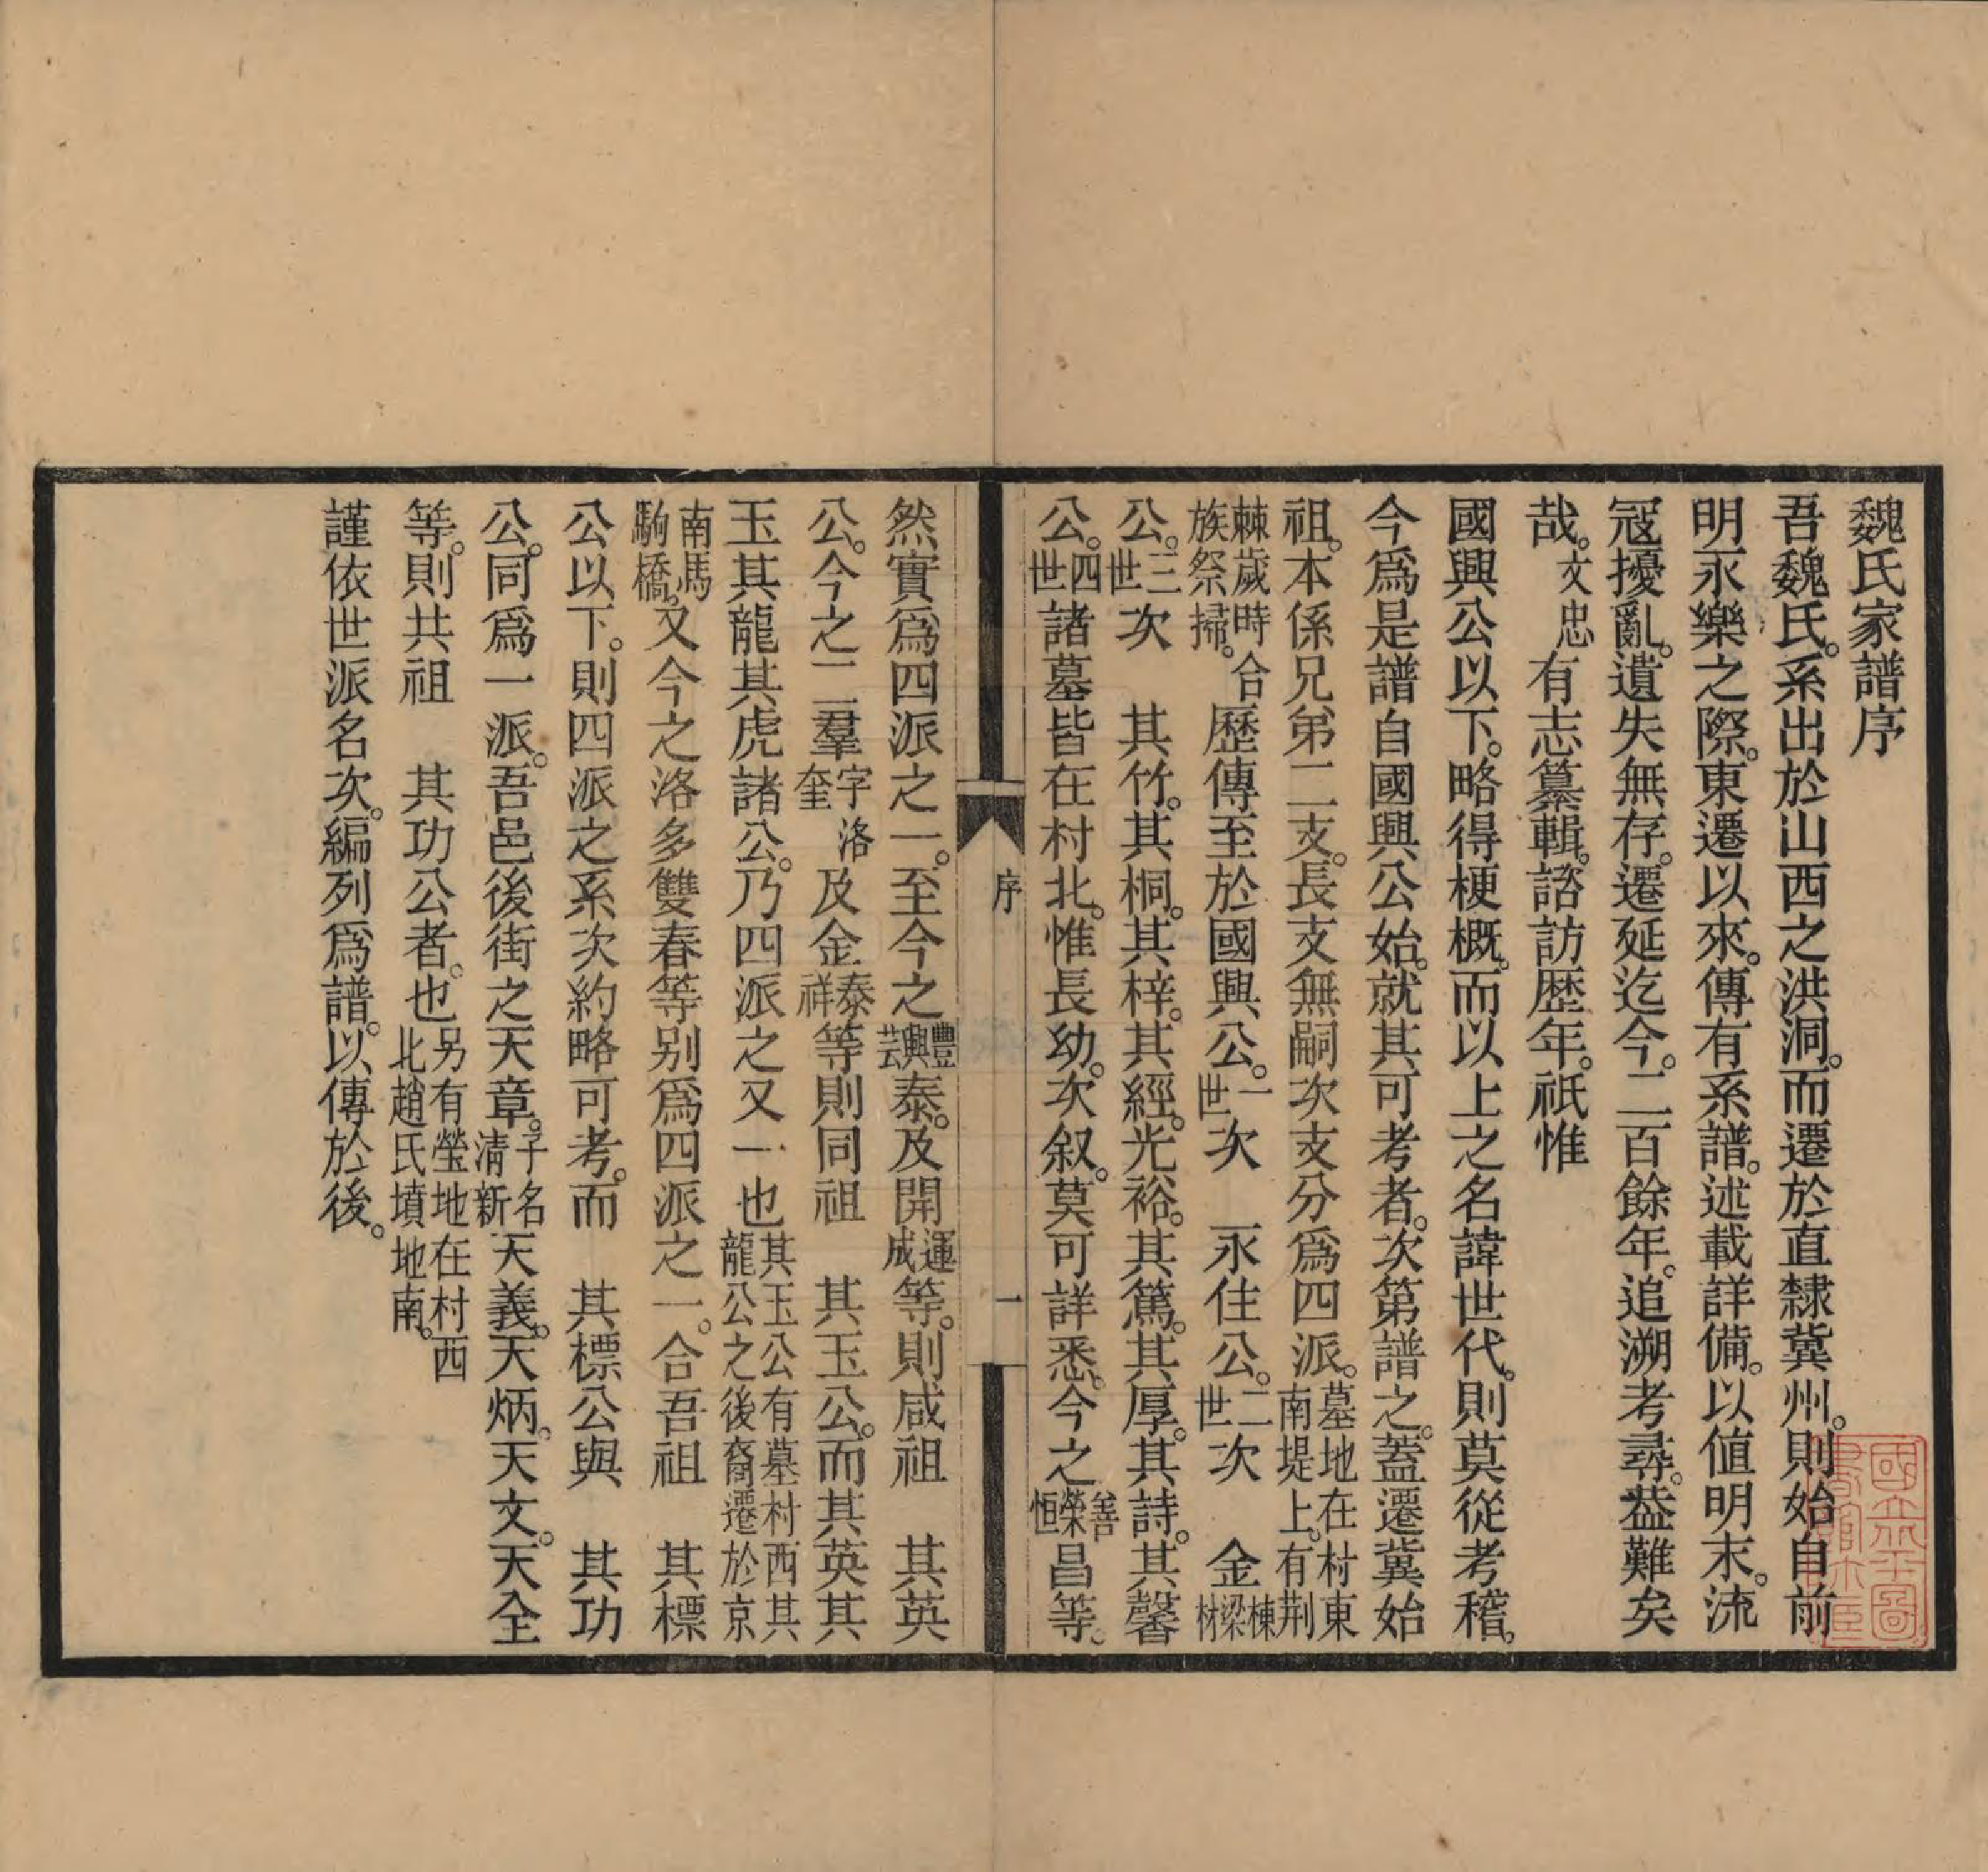 魏氏家譜序
吾魏氏。系出於山西之洪洞。而遷於直隸冀州。則始自前
明永樂之際。東遷以來。傳有系譜。述載詳備。以値明末。流
冦擾亂。遺失無存。遷延迄今。二百餘年。追溯考尋。益難矣
哉。文忠有志纂輯。諮訪歴年。祇惟
國興公以下。略得梗概。而以上之名諱世代。則莫從考稽。
今爲是譜自國興公始。就其可考者。次第譜之。蓋遷冀始
祖。本係兄弟二支。長支無嗣次支分爲四派。墓地在村東南堤上。有荆
棘歲時合族祭掃。歷傳至於國興公。一世次 永住公。二世次 金棟梁材
公。三世次 其竹。其桐。其梓。其經。光裕。其篤。其厚。其詩。其馨
公。四世諸墓皆在村北。惟長幼。次叙。莫可詳悉。今之善榮恒昌等。
序 一
然實爲四派之一。至今之豐興芸泰。及開運成等。則咸祖 其英
公。今之二羣字奎洛及金泰祥等則同祖 其玉公。而其英其
玉其龍其虎諸公。乃四派之又一也其玉公有墓村西其龍公之後裔遷於京
南馬駒橋。又今之洛多雙春等别爲四派之一。合吾祖 其標
公以下。則四派之系次約略可考。而 其標公與 其功
公。同爲一派。吾邑後街之天章。子名清新天義。天炳。天文。天全
等。則共祖 其功公者。也另有瑩地在村西北趙氏墳地南。
謹依世派名次。編列爲譜。以傳於後。